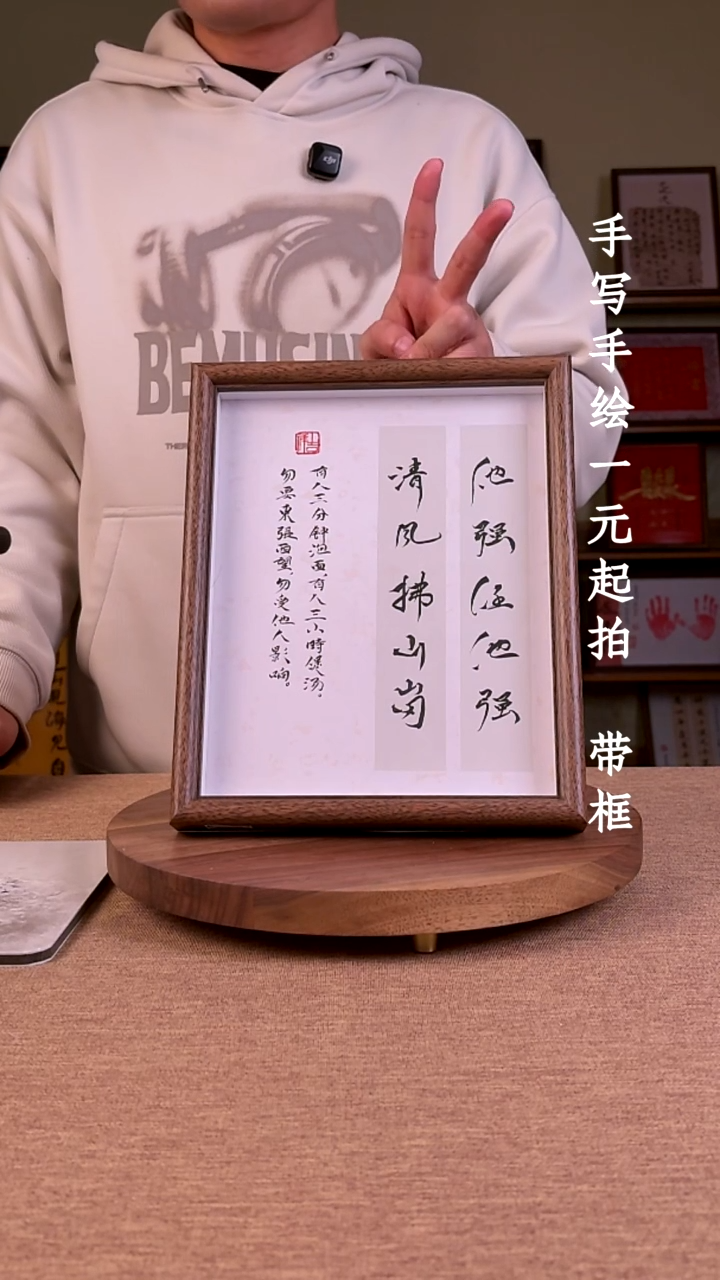 他强任他强
清风拂山岗
有人三分钟泡面,有人三小時煲汤。
勿要東張西望,勿受他人影响。
手写手绘一元起拍 带框
BEMUSIN
THER
dji